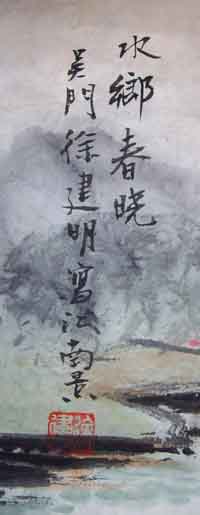 水鄉春晓
吴門徐建明寫江南景